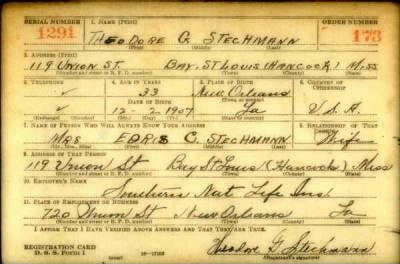 SERIAL NUMBER 1. NAME (Print) ORDER NUMBER
1291 THEODORE G. STECHMANN 173
(First) (Middle) (Last)
2. ADDRESS (Print)
119 UNION ST. BAY ST LOUIS (HANCOCK) MISS
(Number and street or R. F. D. number) (Town) (County) (State)
3. TELEPHONE 4. AGE IN YEARS 5. PLACE OF BIRTH 6. COUNTRY OF CITIZENSHIP
✓ 33 New Orleans
DATE OF BIRTH (Town or county)
✓ 12-2-1907 La U.S.A.
(Exchange) (Number) (Mo.) (Day) (Yr.) (State or country)
7. NAME OF PERSON WHO WILL ALWAYS KNOW YOUR ADDRESS 8. RELATIONSHIP OF THAT PERSON
MRS EDRIS C. STECHMANN Wife
(Mr., Mrs., Miss) (First) (Middle) (Last)
9. ADDRESS OF THAT PERSON
119 Union St Bay St Louis (Hancock) Miss
(Number and street or R. F. D. number) (Town) (County) (State)
10. EMPLOYER'S NAME
Southern Nat Life Ins
11. PLACE OF EMPLOYMENT OR BUSINESS
720 Union St New Orleans La
(Number and street or R. F. D. number) (Town) (County) (State)
I AFFIRM THAT I HAVE VERIFIED ABOVE ANSWERS AND THAT THEY ARE TRUE.
REGISTRATION CARD
D. S. S. Form 1 (over) 16-17105 Theodore G Stechmann
(Registrant's signature)